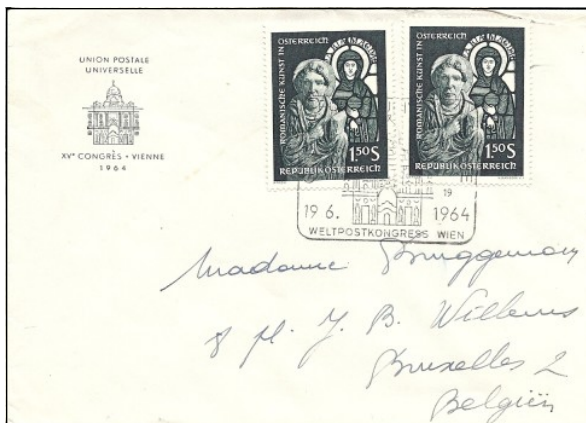 UNION POSTALE
UNIVERSELLE
XVᵉ CONGRÈS • VIENNE
1964
ROMANISCHE KUNST IN ÖSTERREICH
1.50 S
REPUBLIK ÖSTERREICH
ROMANISCHE KUNST IN ÖSTERREICH
1.50 S
REPUBLIK ÖSTERREICH
19
19 6. 1964
WELTPOSTKONGRESS WIEN
Madame Bruggeman
8 pl. J. B. Willems
Bruxelles 2
Belgiën